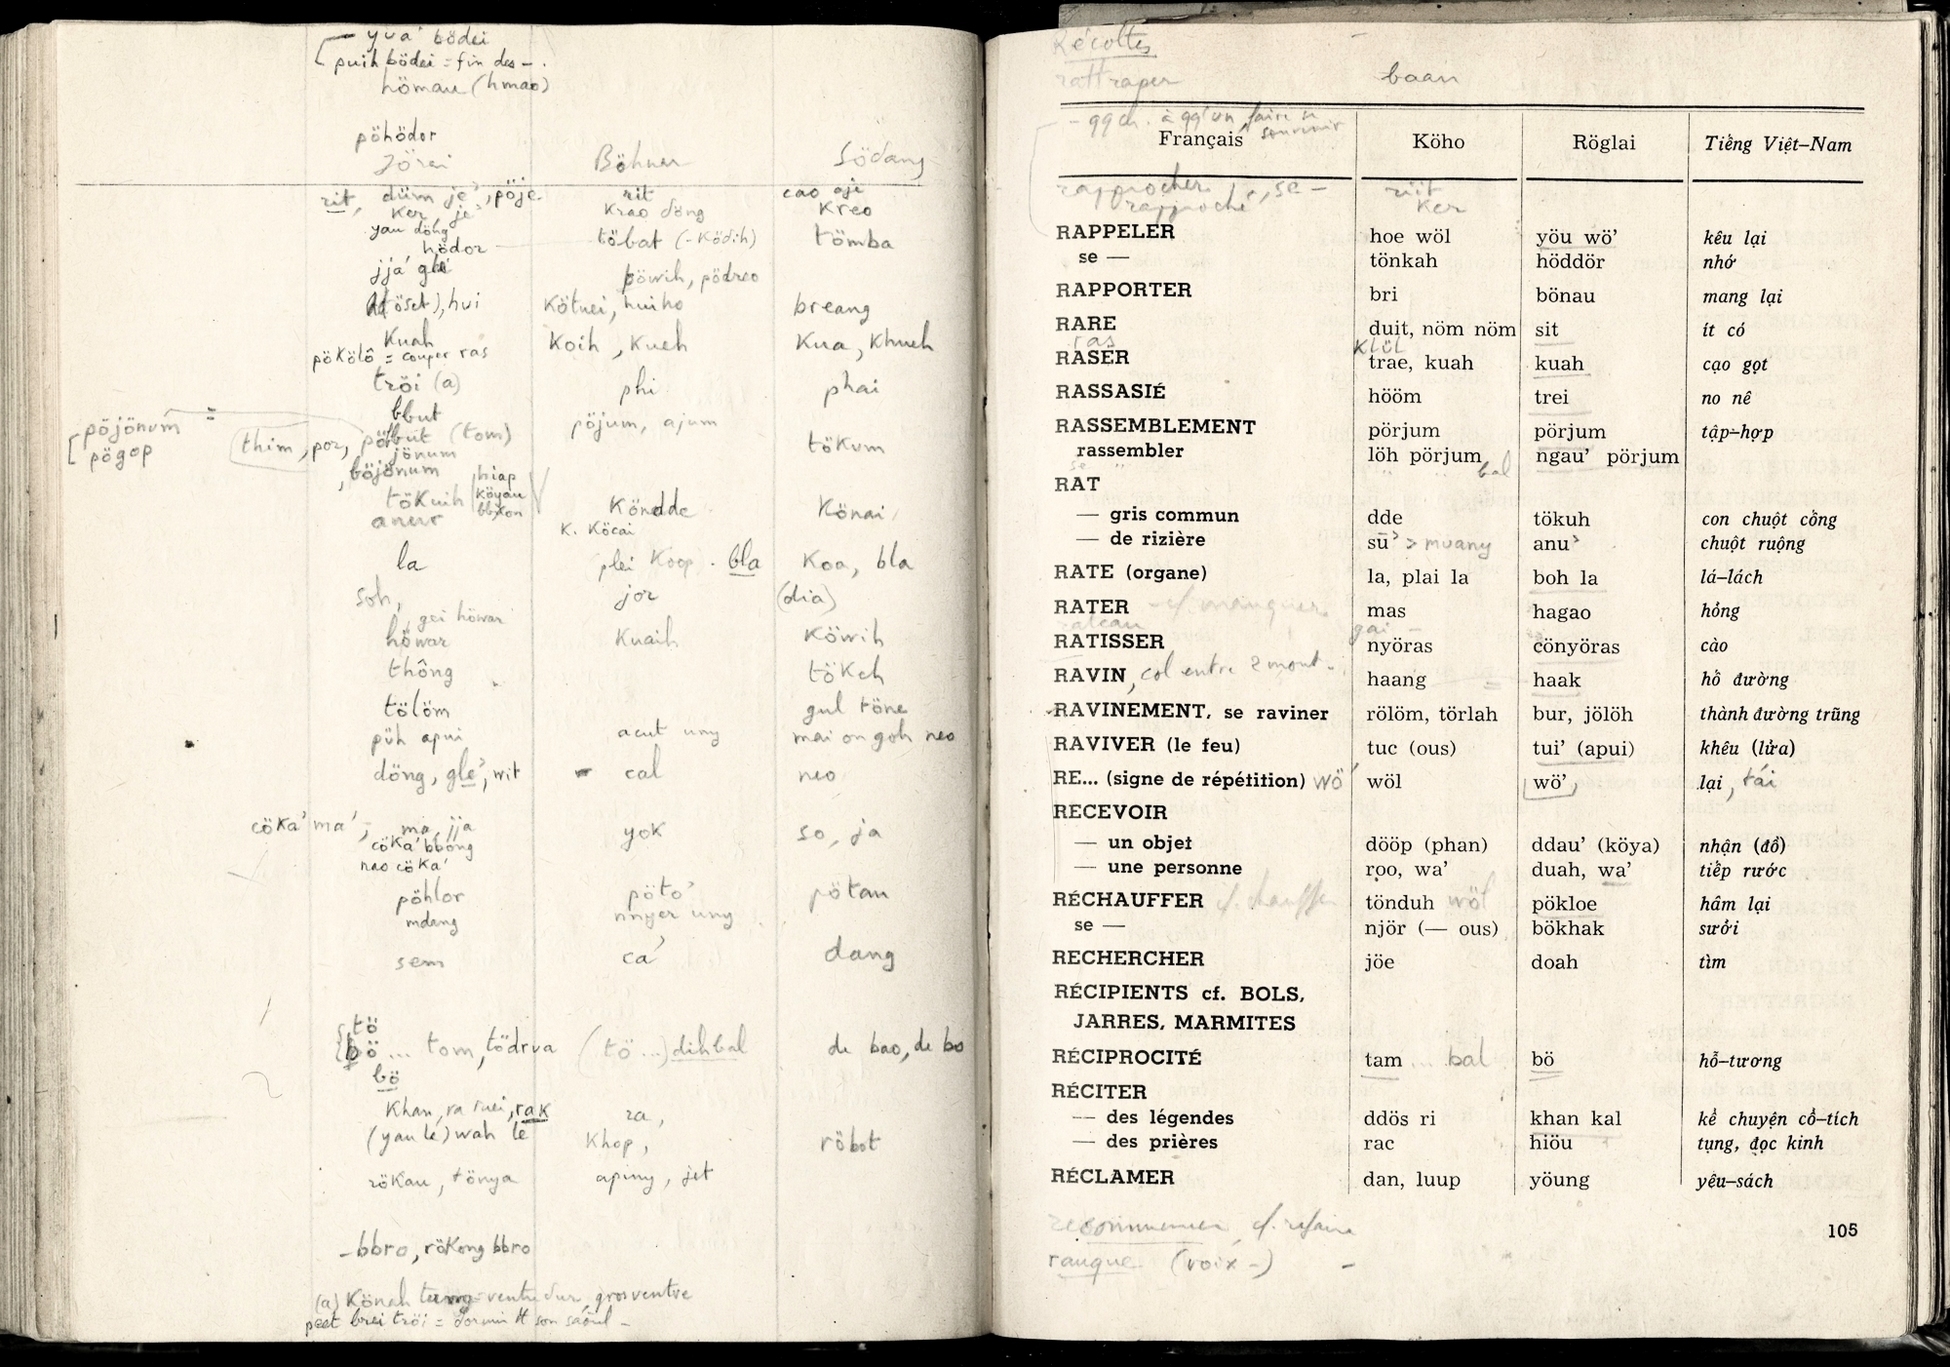 yua' bödei
puih bödei = fin des - .
hömau (hmao)
pöhödor
Jörai Böhner Södang
rit, düm je', pöje rit cao aji
ker, je' krao döng kreo
yau döng
hödor töbat (-ködih) tömba
jja' glé
pöwih, pödreo
(töset), hui kötuei, huiho breang
kuah koih, kueh kua, khueh
pökölô = couper ras
tröi (a) phi phai
bbut
pöjönum = pöjum, ajum
thim, por, pöbut (tom) tökum
pögop jönum
, böjönum hiap
tökuih köyau köndde könai
aneur bbxon k. köcai
la plei koop . bla koa, bla
soh, jor (dia)
, gei höwar
höwar kuaih köwih
thông tökeh
tölöm gul töne
püh apui acut uny mai on goh neo
döng, glê', wit cal neo
cöka' ma', ma, jja yok so, ja
cöka' bböng
nao cöka'
pöhlor pöto' pötau
mdang nnyer uny
sem ca' dang
tö
bö ... tom, tödrua (tö ...) dih bal de bao, de bo
bö
khan, ra ruei, rak ra,
(yau lé) wah lé khop, röbot
rökau, tönya apiny, jet
- bbro, rökong bbro
(a) Könah tung = ventre dur, gros ventre
peet brei tröi = dormir tt son saoul -
Récoltes
rattraper baan
- qq ch. à qq'un, faire se souvenir
Français Köho Röglai Tiếng Việt-Nam
rapprocher, se - riit
rapproché ker
RAPPELER hoe wöl yöu wö’ kêu lại
se — tönkah höddör nhớ
RAPPORTER bri bönau mang lại
RARE duit, nöm nöm sit ít có
ras klöl
RASER trae, kuah kuah cạo gọt
RASSASIÉ hööm trei no nê
RASSEMBLEMENT pörjum pörjum tập-hợp
rassembler löh pörjum ngau’ pörjum
se " " " bal
RAT
— gris commun dde tökuh con chuột cống
— de rizière sū’ > muany anu’ chuột ruộng
RATE (organe) la, plai la boh la lá-lách
RATER - cf. manquer mas hagao hỏng
rateau gai -
RATISSER nyöras cönyöras cào
RAVIN, col entre 2 mont. haang haak hố đường
RAVINEMENT, se raviner rölöm, törlah bur, jölöh thành đường trũng
RAVIVER (le feu) tuc (ous) tui’ (apui) khêu (lửa)
RE... (signe de répétition) wö' wöl wö’, lại, tái
RECEVOIR
— un objet dööp (phan) ddau’ (köya) nhận (đồ)
— une personne roo, wa’ duah, wa’ tiếp rước
RÉCHAUFFER cf. chauffer tönduh wöl pökloe hâm lại
se — njör (— ous) bökhak sưởi
RECHERCHER jöe doah tìm
RÉCIPIENTS cf. BOLS,
JARRES, MARMITES
RÉCIPROCITÉ tam ... bal bö hỗ-tương
RÉCITER
— des légendes ddös ri khan kal kể chuyện cổ-tích
— des prières rac hiöu tụng, đọc kinh
RÉCLAMER dan, luup yöung yêu-sách
recommencer, cf. refaire
105
rauque (voix -) -